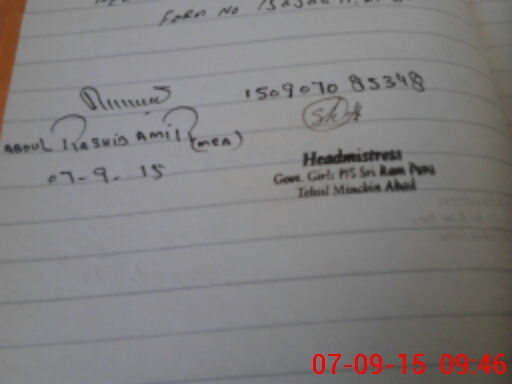 FORM NO
150907085348
ABDUL RASHID AMIR (MEA)
07-9-15
Headmistress
Govt. Girls P/S Sri Ram Pura
Tehsil Minchin Abad
07-09-15 09:46